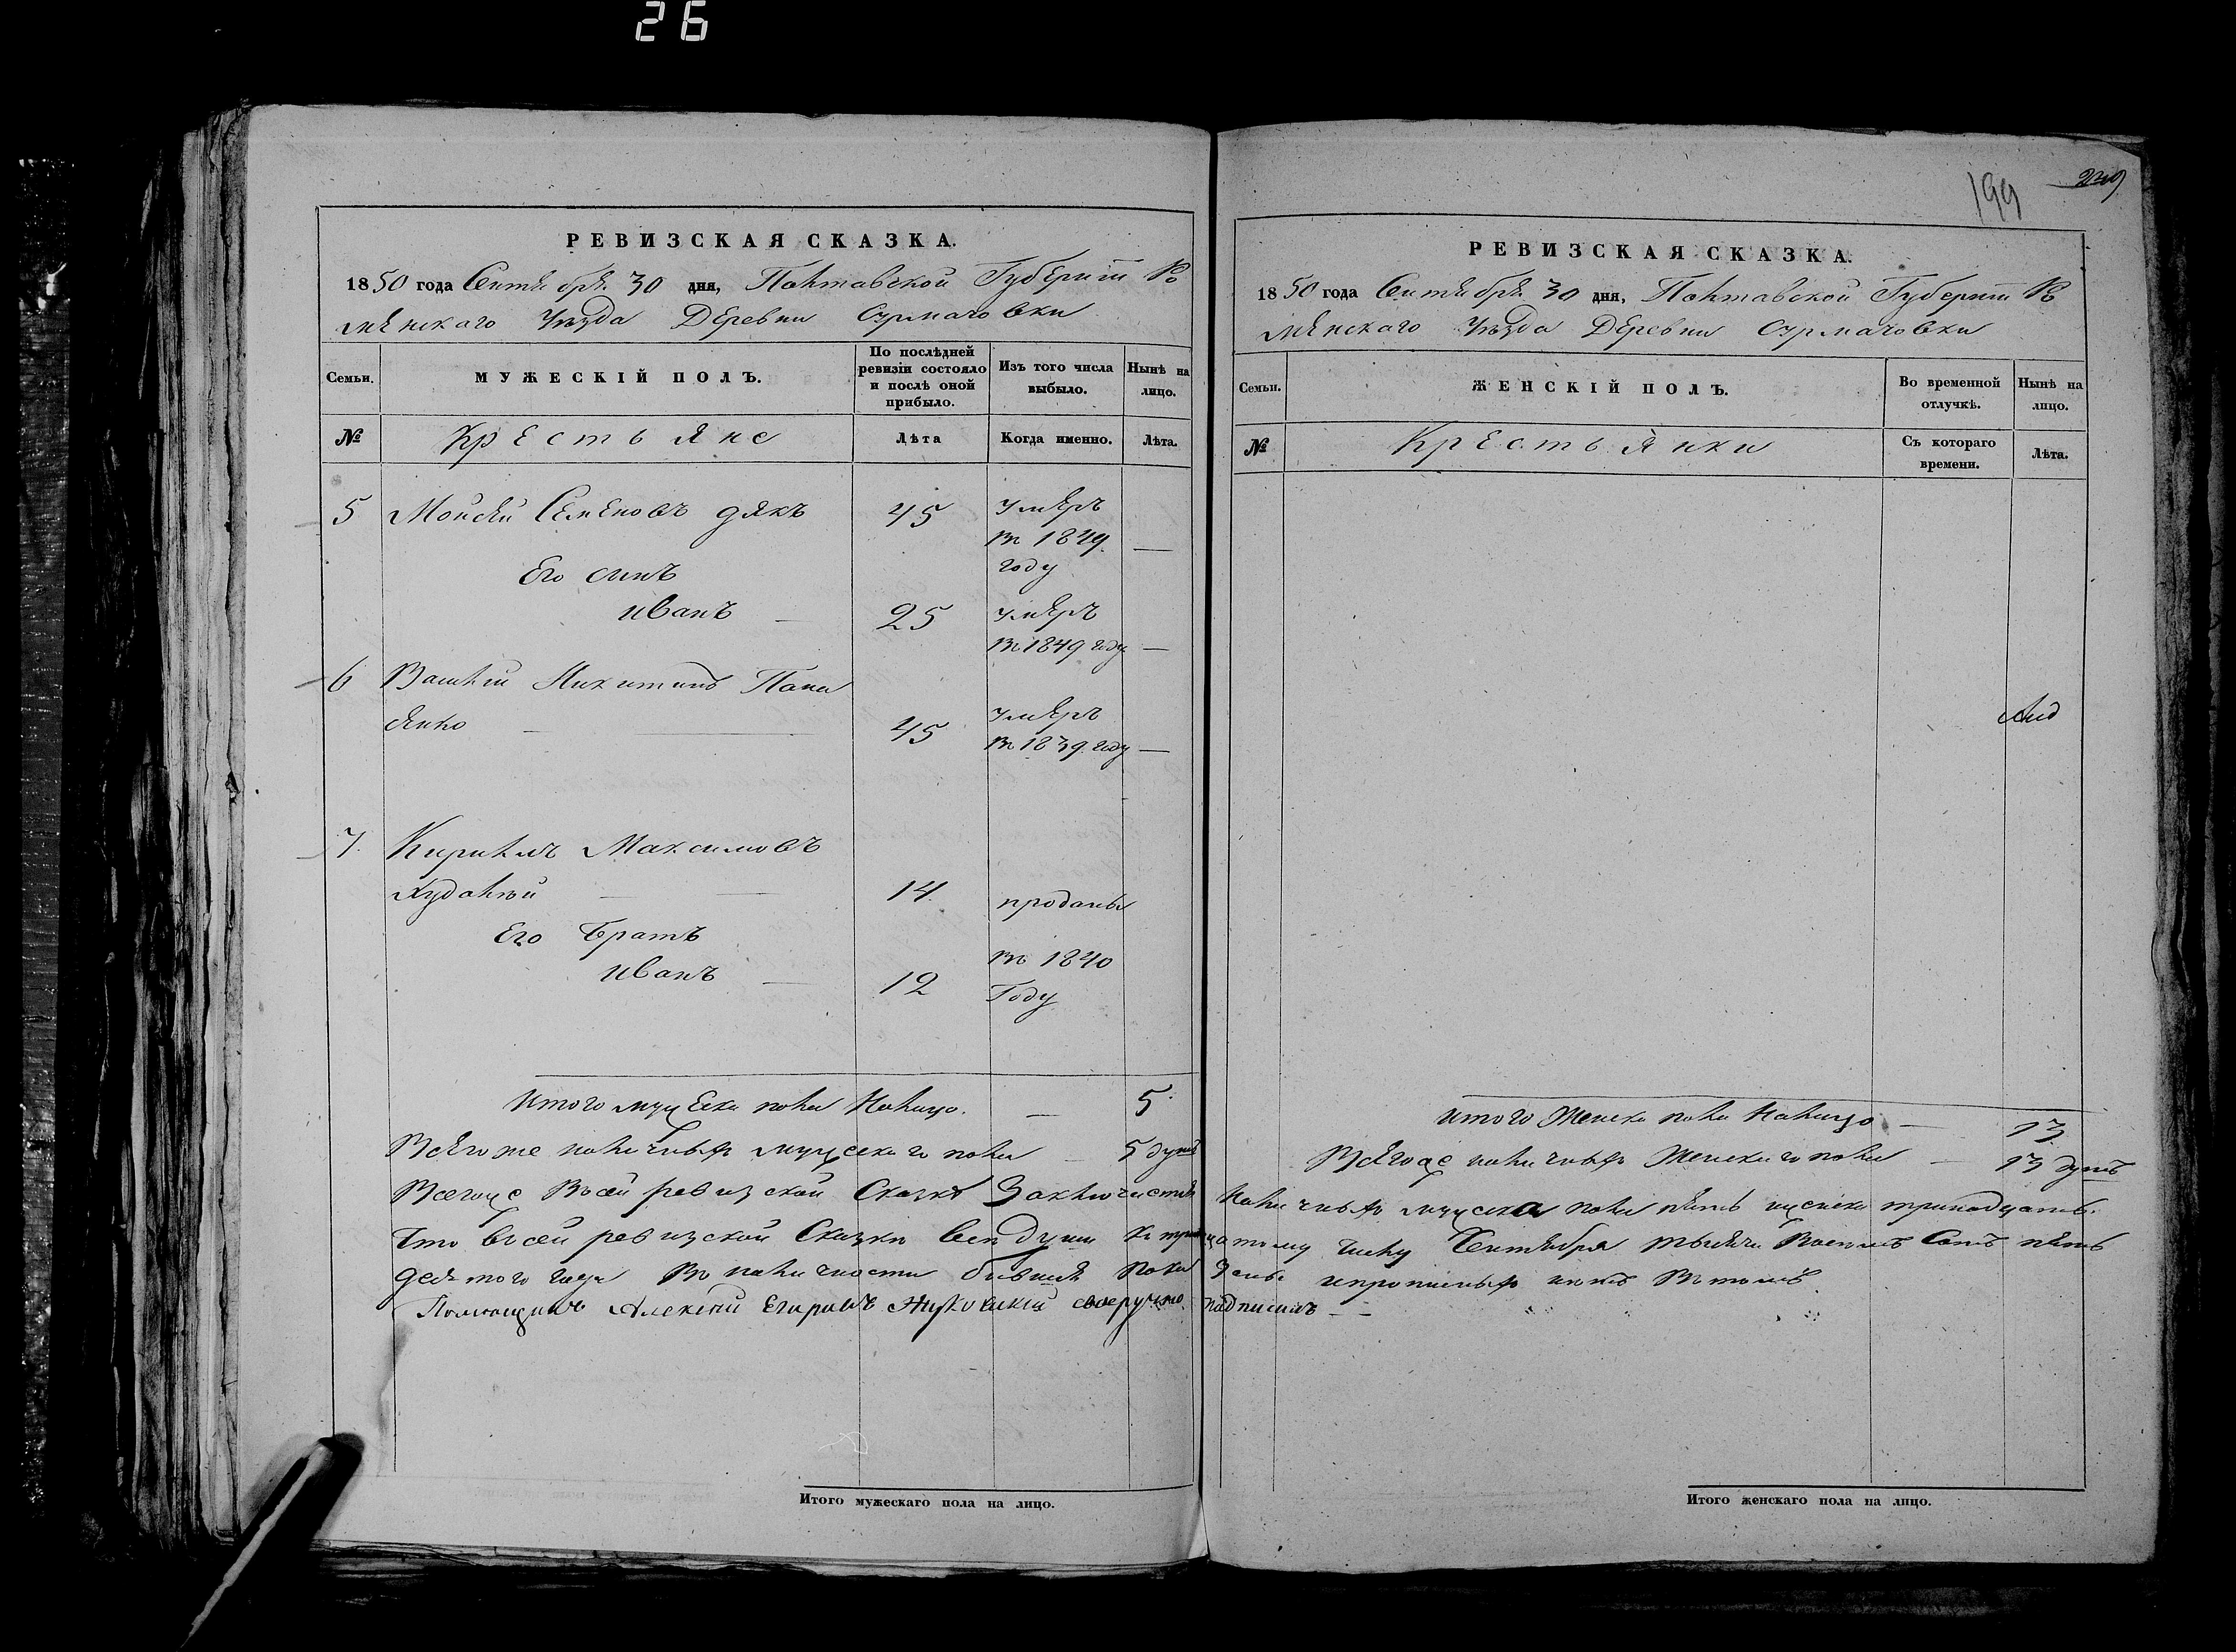 26
199
РЕВИЗСКАЯ СКАЗКА.
1850 года Сентября 30 дня, Полтавской Губернiи Ро
менскаго Уезда Деревни Сурмачовки
Семьи.
МУЖЕСКІЙ ПОЛЪ.
По послѣдней ревизіи состояло и послѣ оной прибыло.
Изъ того числа выбыло.
Нынѣ на лицо.
№
Крестьяне
Лѣта
Когда именно.
Лѣта.
5 Моисей Семеновъ дякъ 45 умеръ
в 1849 —
году
Его синъ
иванъ — 25 умеръ
в 1849 году —
6 Василий Никитинъ Пана
сенко — 45 умеръ
в 1839 году —
7. Кирилъ Максимовъ
Худолей — — 14. проданы
Его Братъ
иванъ — 12 въ 1840
Году
Итого мужеска пола Налицо. — 5
Всегоже наличныхъ мужскаго пола — 5 душъ
Итого мужескаго пола на лицо.
РЕВИЗСКАЯ СКАЗКА.
1850 года Сентября 30 дня, Полтавской Губернiи Ро
менскаго Уезда Деревни Сурмачовки
Семьи.
ЖЕНСКІЙ ПОЛЪ.
Во временной отлучкѣ.
Нынѣ на лицо.
№
Крестьянки
Съ котораго времени.
Лѣта.
итого Женска пола Налицо — 13
Всегоже наличныхъ Женскаго пола — 13 душъ
Всегоже Въсей ревизской Сказке Заключается Наличныхъ мужска пола пять женска тринадцать.
Что въсей ревизской Сказки веи души к тридцатому числу Сентября тысяча Восемъ Сотъ пять
десятого года Въ наличности бившия
Помещикъ Алексей свееручно падписалъ — —
Итого женскаго пола на лицо.